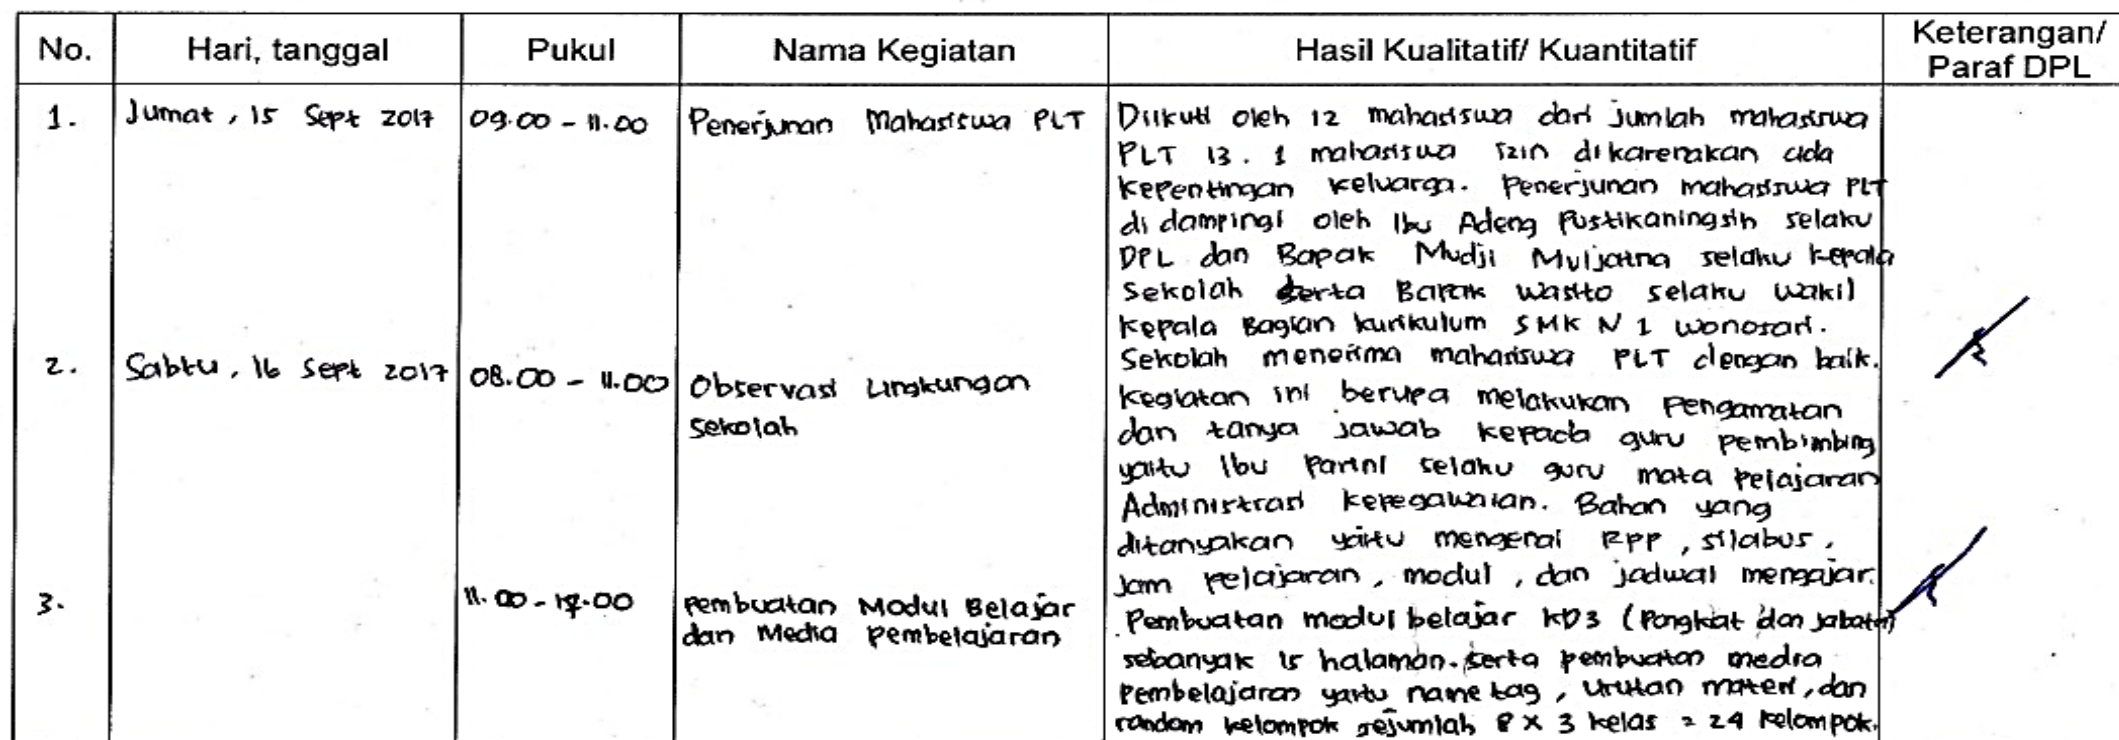 No. Hari, tanggal Pukul Nama Kegiatan Hasil Kualitatif/ Kuantitatif Keterangan/ Paraf DPL
1. Jumat, 15 Sept 2017 09.00 - 11.00 Penerjunan Mahasiswa PLT Diikuti oleh 12 mahasiswa dari jumlah mahasiswa
PLT 13. 1 mahasiswa izin dikarenakan ada
kepentingan keluarga. Penerjunan mahasiswa PLT
di dampingi oleh Ibu Adeng Pustikaningsih selaku
DPL dan Bapak Mudji Muljatna selaku kepala
Sekolah serta Bapak Wasito selaku wakil
kepala Bagian kurikulum SMK N 1 Wonosari.
Sekolah menerima mahasiswa PLT dengan baik.
2. Sabtu, 16 Sept 2017 08.00 - 11.00 Observasi Lingkungan
Sekolah
Kegiatan ini berupa melakukan pengamatan
dan tanya jawab kepada guru pembimbing
yaitu Ibu Partini selaku guru mata pelajaran
Administrasi kepegawaian. Bahan yang
ditanyakan yaitu mengenai RPP, silabus,
jam pelajaran, modul, dan jadwal mengajar.
3. 11.00 - .00 Pembuatan Modul Belajar
dan Media pembelajaran
Pembuatan modul belajar KD3 (Pangkat dan jabatan)
sebanyak 15 halaman. serta pembuatan media
pembelajaran yaitu name tag, urutan materi, dan
random kelompok sejumlah 8 x 3 kelas = 24 kelompok.